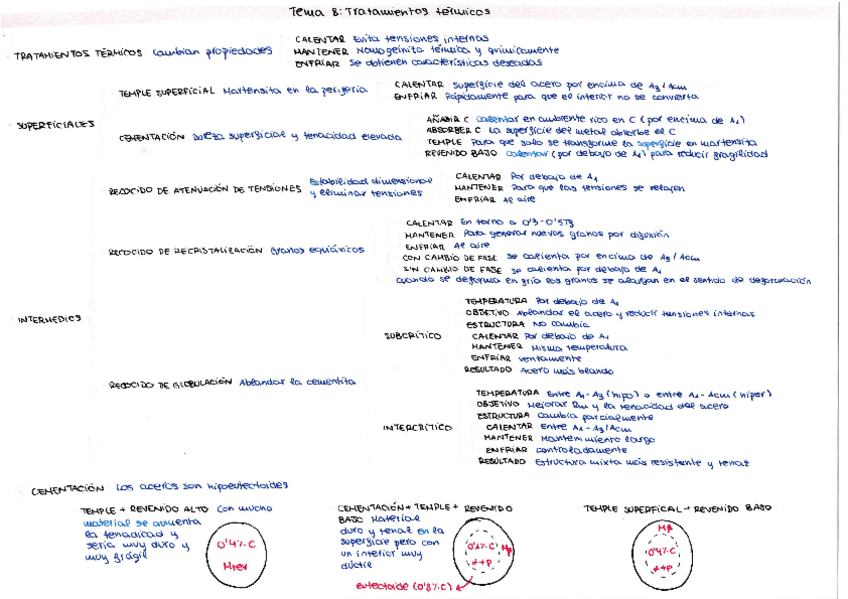 Tema 8: Tratamientos térmicos
TRATAMIENTOS TÉRMICOS Cambian propiedades
CALENTAR Evita tensiones internas
MANTENER Homogeiniza térmica y químicamente
ENFRIAR Se obtienen características deseadas
SUPERFICIALES
TEMPLE SUPERFICIAL Martensita en la periferia
CALENTAR Superficie del acero por encima de A3/Acm
ENFRIAR Rápidamente para que el interior no se convierta
CEMENTACIÓN Dureza superficial y tenacidad elevada
AÑADIR C Calentar en ambiente rico en C (por encima de A1)
ABSORBER C La superficie del metal absorbe el C
TEMPLE Para que solo se transforme la superficie en martensita
REVENIDO BAJO Calentar (por debajo de A1) para reducir fragilidad
INTERMEDIOS
RECOCIDO DE ATENUACIÓN DE TENSIONES Estabilidad dimensional
y eliminar tensiones
CALENTAR Por debajo de A1
MANTENER Para que las tensiones se relajen
ENFRIAR Al aire
RECOCIDO DE RECRISTALIZACIÓN Granos equiáxicos
CALENTAR En torno a 0'3-0'5Tf
MANTENER Para generar nuevos granos por difusión
ENFRIAR Al aire
CON CAMBIO DE FASE Se calienta por encima de A3/Acm
SIN CAMBIO DE FASE Se calienta por debajo de A1
Cuando se deforma en frío los granos se alargan en el sentido de deformación
RECOCIDO DE GLOBULACIÓN Ablandar la cementita
SUBCRÍTICO
TEMPERATURA Por debajo de A1
OBJETIVO Ablandar el acero y reducir tensiones internas
ESTRUCTURA No cambia
CALENTAR Por debajo de A1
MANTENER Misma temperatura
ENFRIAR Lentamente
RESULTADO Acero más blando
INTERCRÍTICO
TEMPERATURA Entre A1-A3 (hipo) o entre A1-Acm (hiper)
OBJETIVO Mejorar Rm y la tenacidad del acero
ESTRUCTURA Cambia parcialmente
CALENTAR Entre A1-A3/Acm
MANTENER Mantenimiento largo
ENFRIAR Controladamente
RESULTADO Estructura mixta más resistente y tenaz
CEMENTACIÓN Los aceros son hipoeutectoides
TEMPLE + REVENIDO ALTO Con mucho
material se aumenta
la tenacidad y
sería muy duro y
muy frágil
0'4%C
Mrev
CEMENTACIÓN + TEMPLE + REVENIDO
BAJO Material
duro y tenaz en la
superficie pero con
un interior muy
dúctil
Mp
α+p
eutectoide (0'8%C)
TEMPLE SUPERFICAL + REVENIDO BAJO
MB
0'4%C
α+p